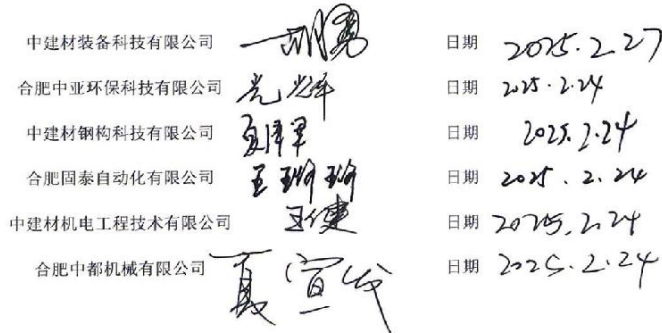 中建材装备科技有限公司 胡勇 日期 2025.2.27
合肥中亚环保科技有限公司 光辉 日期 2025.2.24
中建材钢构科技有限公司 日期 2025.2.24
合肥固泰自动化有限公司 王璐璐 日期 2025.2.24
中建材机电工程技术有限公司 王健 日期 2025.2.24
合肥中都机械有限公司 夏宣 日期 2025.2.24